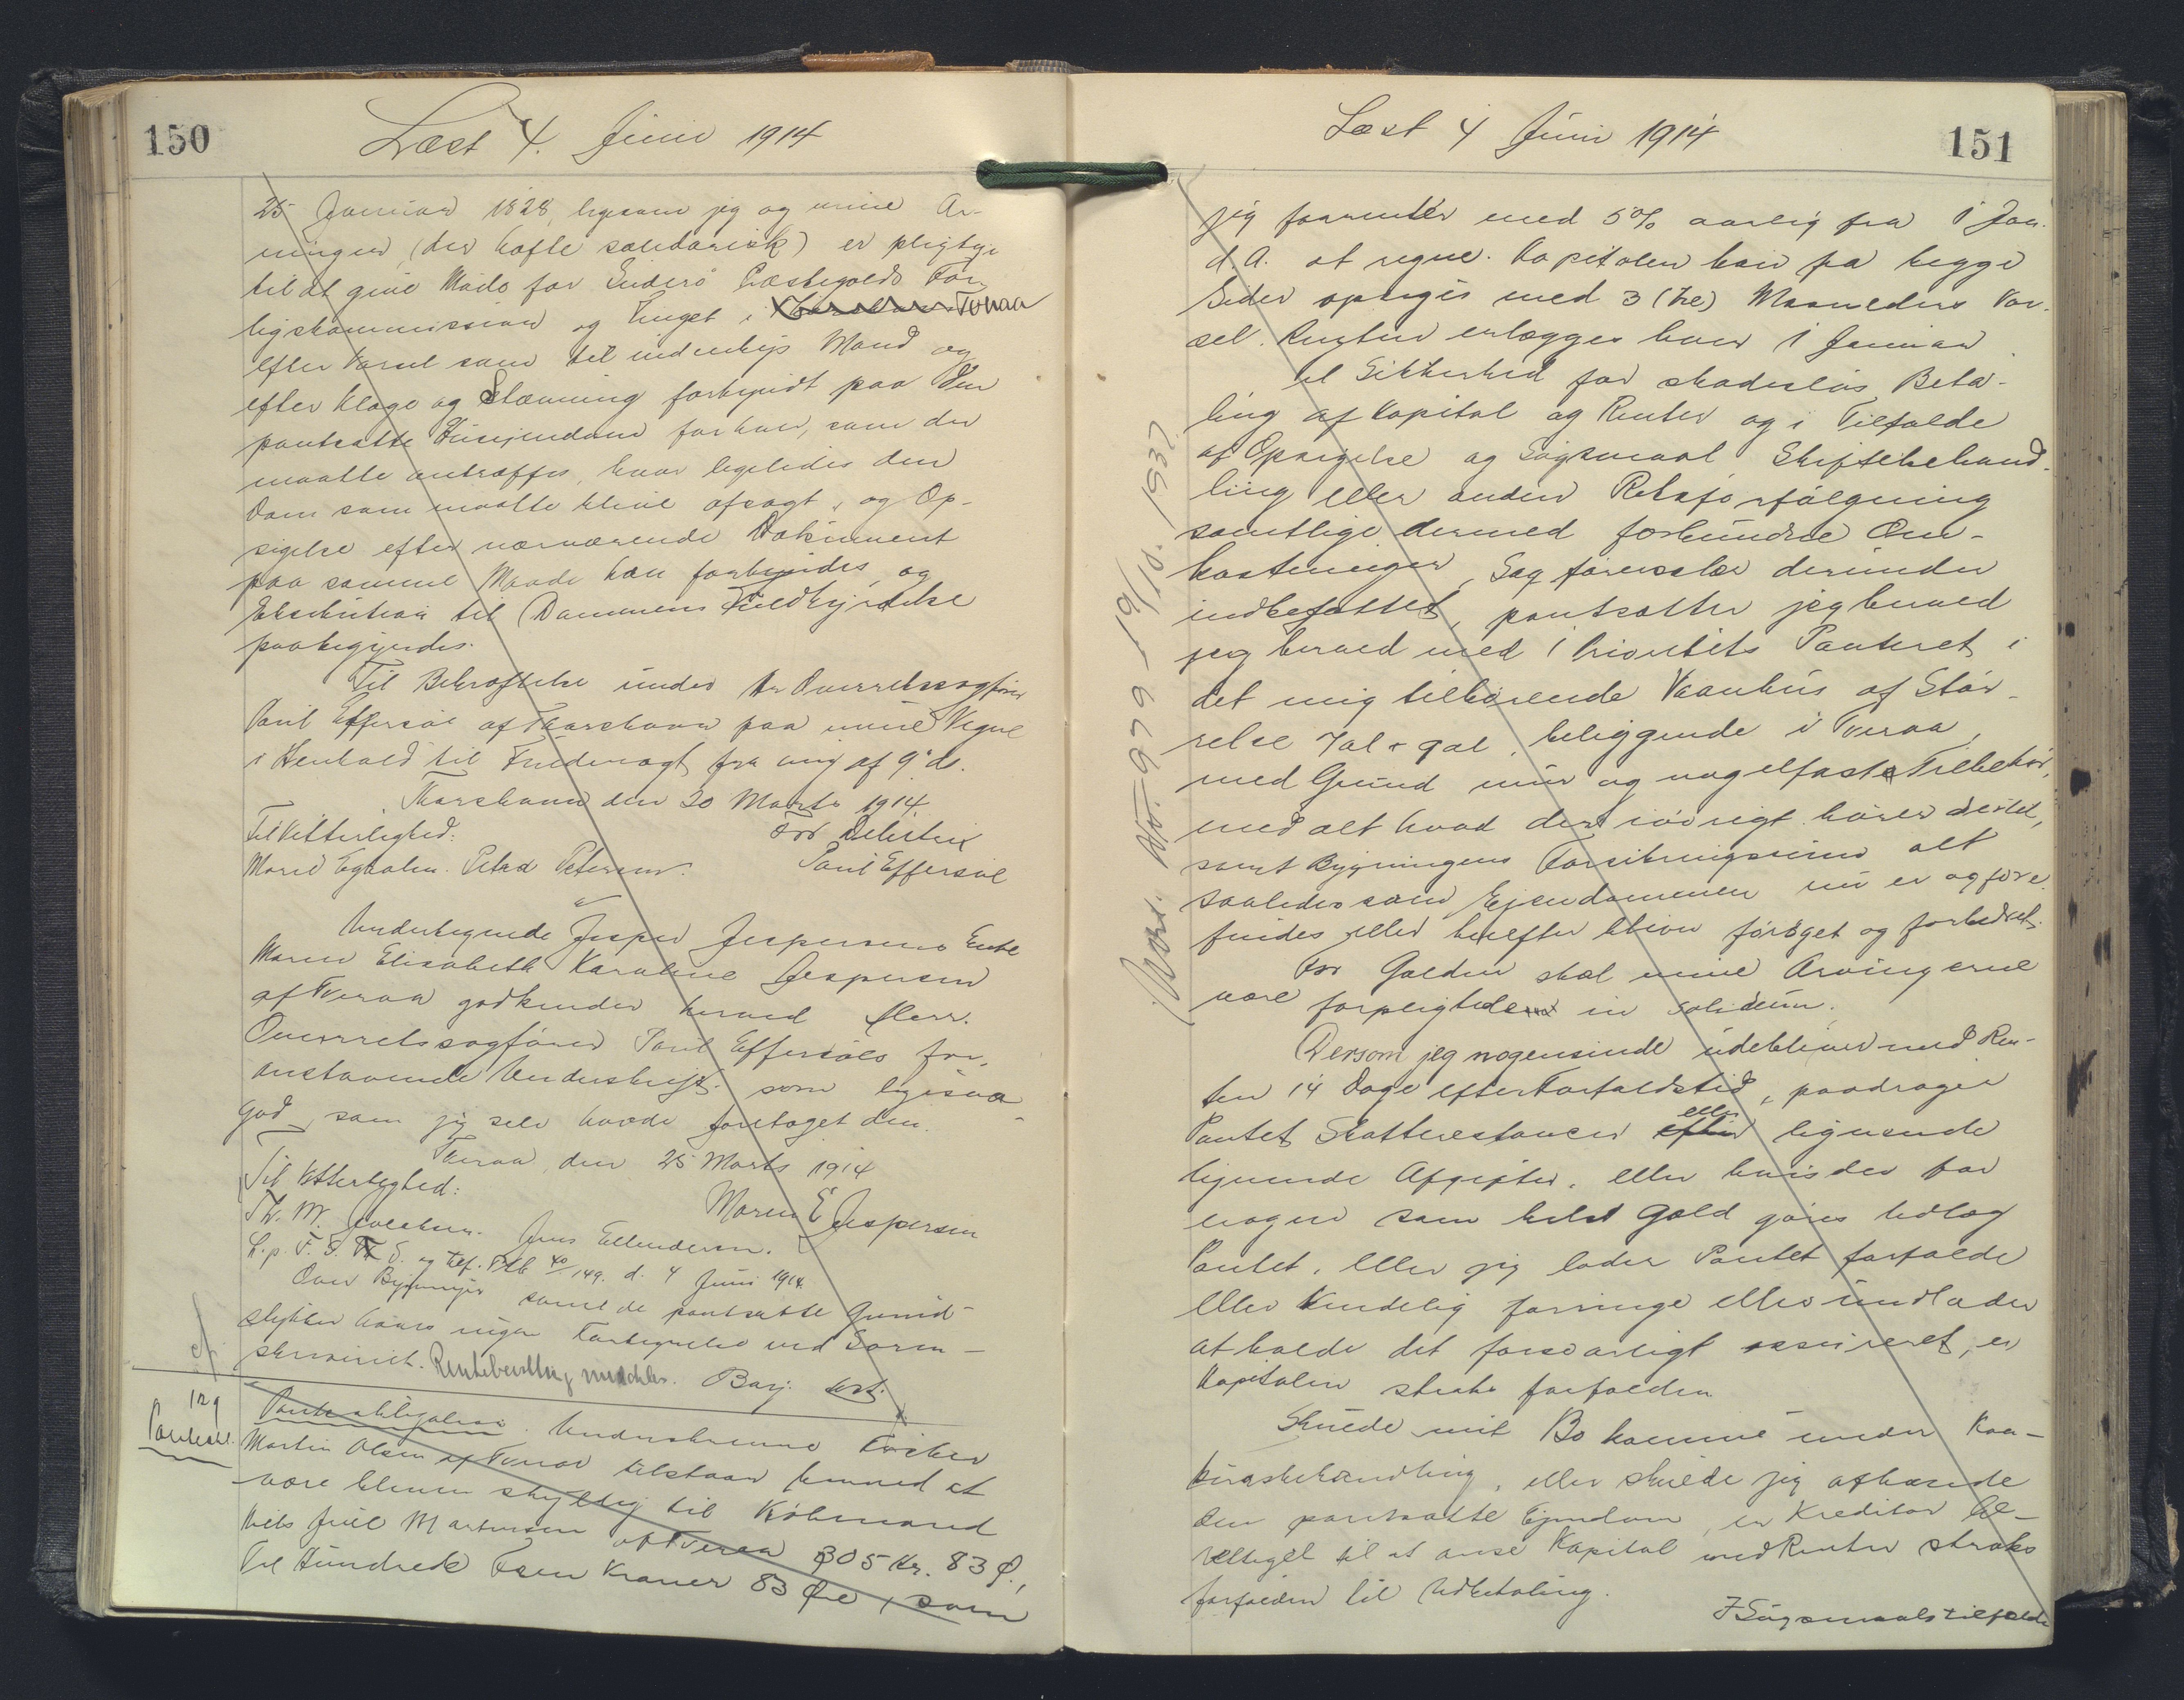 150
Læst 4. Juni 1914
25 Januar 1828, ligesom jeg og mine Ar-
vinger (der hæfte solidarisk) er pligtige
til at give Møde for Suderø Præstegælds For
ligskommission og Tinget i Tveraa
efter Varsel som til indenbys Mand og
efter Klage og Stævning forkyndt paa den
pantsatte Husejendom for hver, som der
maatte antræffes, hvor ligeledes den
Dom som maatte blive afsagt, og Op-
sigelse efter nærværende Dokument
paa samme Maade kan forkyndes, og
Eksekution til Dommens Fuldbyrdelse
paabegyndes.
Til Bekræftelse under Hr Overretssagfører
Poul Effersøe af Thorshavn paa mine Vegne
i Henhold til Fuldmagt fra mig af 9' ds.
Thorshavn den 20 Marts 1914
Til Vitterlighed:
For Debitrix
Petra Petersen.
Poul Effersøe
Undertegnede Jesper Jespersens Enke
Maren Elisabeth Karoline Jespersen
af Tveraa godkender herved Herr.
Overretssagfører Poul Effersøes for-
anstaaende Underskrift som ligesaa
god, som jeg selv havde foretaget den.
Tveraa, den 25 Marts 1914
Til Vitterlighed:
Maren E Jespersen
Jens Ellendersen.
149. d. 4 Juni 1914.
Over Bygninger samt de pantsatte Grund-
stykker haves ingen Forsegnelse ved Soren-
skriveriet.
129
Panteobl.
Panteobligation. Underskrevne Fisker
Martin Olsen af Tveraa tilstaar hermed at
være bleven skyldig til Købmand
Niels Juel Mortensen af Tveraa 305 Kr. 83 Ø.,
Tre Hundrede Fem Kroner 83 Øre, som
151
Læst 4 Juni 1914
jeg forrenter med 5% aarlig fra 1 Jan.
d. A. at regne. Kapitalen kan fra begge
Sider opsiges med 3 (tre) Maaneders Var-
sel. Renten erlægges hver 1 Januar.
Til Sikkerhed for skadesløs Beta-
ling af Kapital og Renter og i Tilfælde
af Opsigelse og Søgsmaal, Skiftebehand-
ling eller anden Retsforfølgning
samtlige dermed forbundne Om-
kostninger, Sagførersalær derunder
indbefattet, pantsætter jeg herved
jeg herved med 1 Prioritets Panteret i
det mig tilhørende Vaanhus af Stør-
relse 7 al x 9 al, beliggende i Tveraa,
med Grund mur og nagelfaste Tilbehør,
med alt hvad der iøvrigt hører dertil,
samt Bygningens Forsikringssum alt
saaledes som Ejendommen nu er og fore-
findes eller herefter bliver forøget og forbedret.
For Gælden skal mine Arvingerne
være forpligtede in solidum.
Dersom jeg nogensinde udebliver med Ren-
ten 14 Dage efter Forfaldstid, paadrager
Pantet Skatterestancer eller lignende
lignende Afgifter, eller hvis der for
nogen som helst Gæld gøres Udlæg
Pantet, eller jeg lader Pantet forfalde
eller kendelig forringe eller undlader
at holde det forsvarligt assureret, er
Kapitalen straks forfalden
Skulde mit Bo komme under Kon-
kursbehandling, eller skulde jeg afhænde
den pantsatte Ejendom, er Kreditor be-
rettiget til at anse Kapital med Renter straks
forfalden til Udbetaling.
I Søgsmaalstilfælde
19/10. 1937.